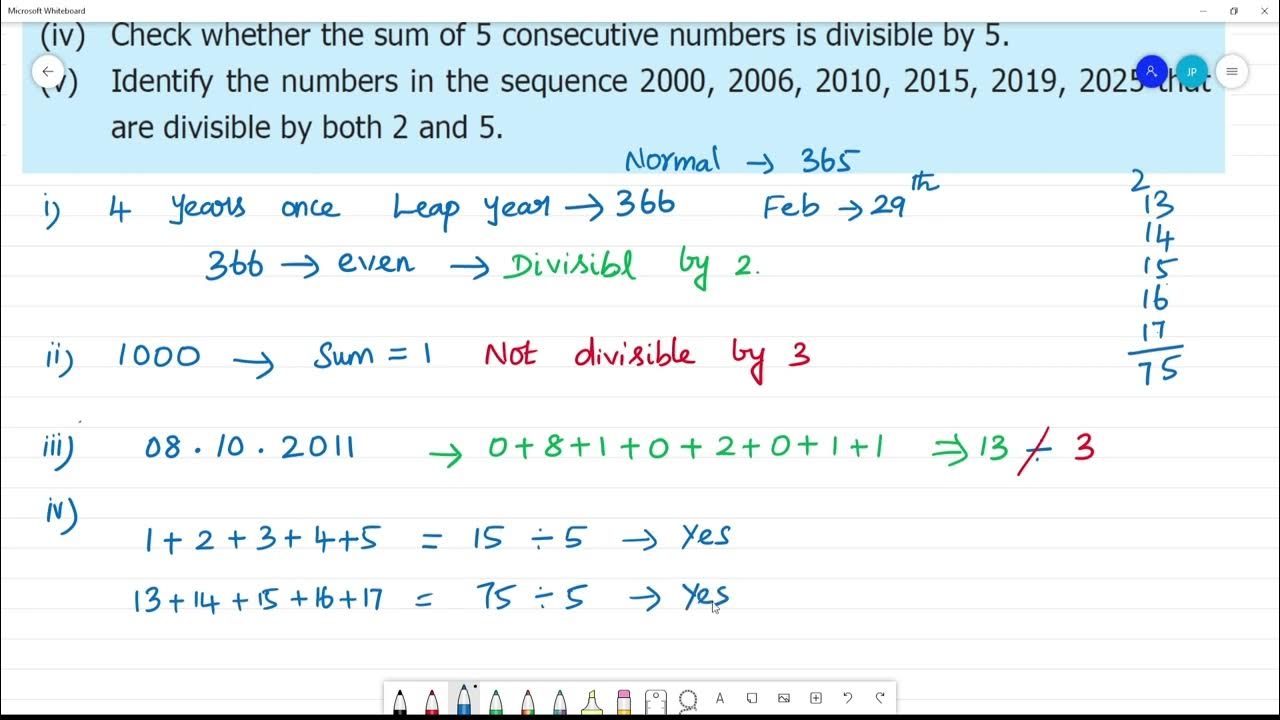 Microsoft Whiteboard
(iv) Check whether the sum of 5 consecutive numbers is divisible by 5.
JP
(v) Identify the numbers in the sequence 2000, 2006, 2010, 2015, 2019, 2025 that
are divisible by both 2 and 5.
Normal → 365
i) 4 years once Leap year → 366 Feb → 29th
366 → even → Divisibl by 2.
2
13
14
15
16
17
75
ii) 1000 → Sum = 1 Not divisible by 3
iii) 08.10.2011 → 0+8+1+0+2+0+1+1 ⇒ 13 ÷ 3
iv)
1+2+3+4+5 = 15 ÷ 5 → Yes
13+14+15+16+17 = 75 ÷ 5 → Yes
A